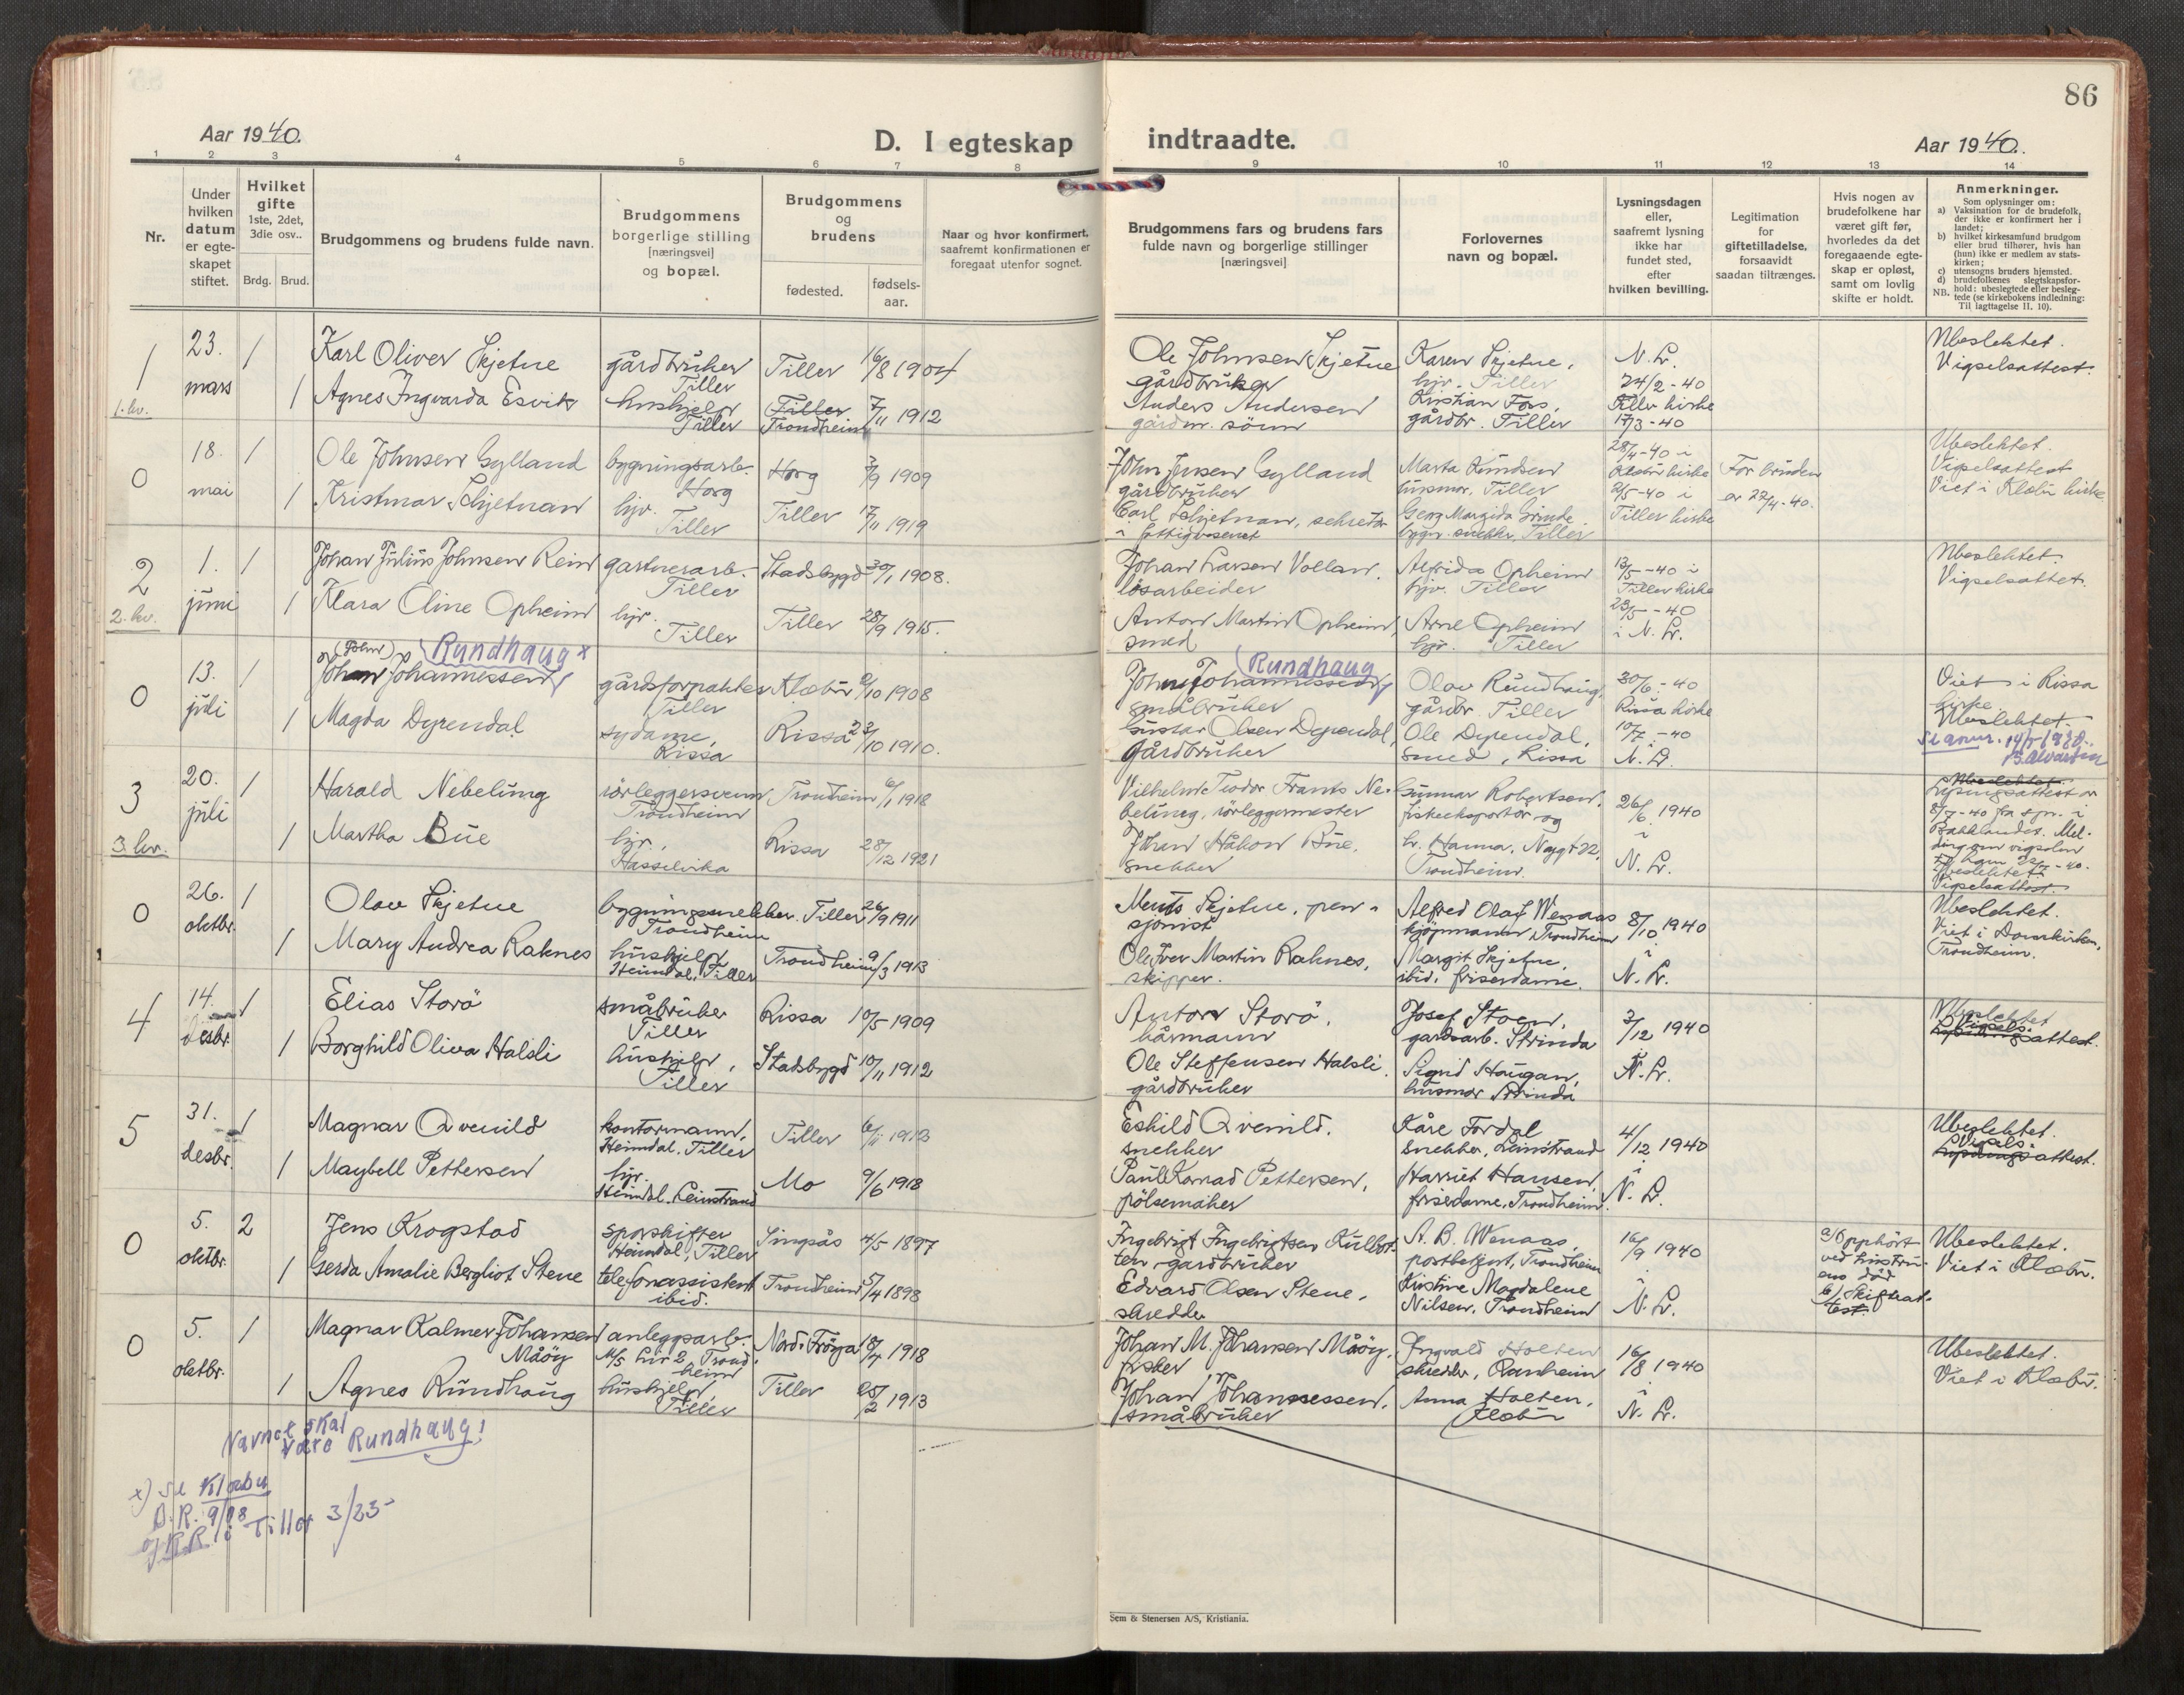 86
Aar 1940.
D. I egteskap
indtraadte.
Aar 1940.
1 2 3 4 5 6 7 8 9 10 11 12 13 14
Nr.
Under
hvilken
datum
er egte-
skapet
stiftet.
Hvilket
gifte
1ste, 2det,
3die osv..
Brdg. Brud.
Brudgommens og brudens fulde navn.
Brudgommens
borgerlige stilling
[næringsvei]
og bopæl.
Brudgommens
og
brudens
fødested.
fødsels-
aar.
Naar og hvor konfirmert,
saafremt konfirmationen er
foregaat utenfor sognet.
Brudgommens fars og brudens fars
fulde navn og borgerlige stillinger
[næringsvei]
Forlovernes
navn og bopæl.
Lysningsdagen
eller,
saafremt lysning
ikke har
fundet sted,
efter
hvilken bevilling.
Legitimation
for
giftetilladelse,
forsaavidt
saadan tiltrænges.
Hvis nogen av
brudefolkene har
været gift før,
hvorledes da det
foregaaende egte-
skap er opløst,
samt om lovlig
skifte er holdt.
Anmerkninger.
Som oplysninger om:
a) Vaksination for de brudefolk,
der ikke er konfirmert her i
landet;
b) hvilket kirkesamfund brudgom
eller brud tilhører, hvis han
(hun) ikke er medlem av stats-
kirken;
c) utensogns bruders hjemsted.
d) brudefolkenes slegtskapsfor-
hold: ubeslegtede eller besleg-
NB. tede (se kirkebokens indledning:
Til iagttagelse II. 10).
1
1. kv.
23.
mars
1
1
Karl Oliver Skjetne
Agnes Ingvarda Esvik
gårdbruker
Tiller
hushjelp
Tiller
Tiller 16/8 1904
Tiller
Trondheim 7/11 1912
Ole Johnsen Skjetne
gårdbruker
Anders Andersen
gårdm. sönn
Karen Skjetne,
hjv. Tiller
Kristian Fors,
gårdbr. Tiller
N. Lr.
24/2-40
Tiller kirke
17/3-40
Ubeslektet.
Vigselsattest.
0
18.
mai
1
1
Ole Johnsen Gylland
Kristmar Skjetnan
bygningsarb.
Horg
hjv.
Tiller
Horg 3/9 1909
Tiller 17/11 1919
John Jensen Gylland
gårdbruker
Carl Skjetnan, sekretær
i fattigvesenet
Marta Knudsen
husmor, Tiller
Georg Margido Grinde
bygn. snekker, Tiller
28/4-40 i
Klæbu kirke
2/5-40 i
Tiller kirke
For bruden
er 22/4-40.
Ubeslektet.
Vigselsattest
Viet i Klæbu kirke
2
2. kv.
1.
juni
1
1
Johan Julius Johnsen Rein
Klara Oline Opheim
gartnerarb.
Tiller
hjv.
Tiller
Stadsbygd 30/1 1908.
Tiller 28/9 1915.
Johan Larsen Vollan.
løsarbeider
Anton Martin Opheim,
smed
Alfrida Opheim
hjv. Tiller
Arne Opheim
hjv. Tiller
13/5-40 i
Tiller kirke
23/5-40
i N. Lr.
Ubeslektet.
Vigselsattest.
0
13.
juli
1
1
(John) x) Rundhaug x
Johan Johannessen
Magda Dyrendal
gårdsforpakter
Tiller
sydame,
Rissa
Klæbu 2/10 1908
Rissa 23/10 1910.
Rundhaug
John Johannessen
småbruker
Gustav Olsen Dyrendal,
Gårdbruker
Olav Rundhaug,
gårdbr. Tiller
Ole Dyrendal,
smed, Rissa
30/6-40
Rissa kirke
10/7-40
N. Lr.
Viet i Rissa
kirke.
Ubeslektet.
3
3. kv.
20.
juli
1
1
Harald Nebelung
Martha Bue
rörleggersvenn
Trondheim
hjv.,
Hasselvika
Trondheim 6/1 1918
Rissa 28/12 1921
Vilhelm Teodor Frants Ne-
belung, rörleggermester
Johan Håkon Bue,
snekker
Gunnar Robertsen,
fiskeeksportör og
fr. Hanna, Nygt 22,
Trondheim.
26/6 1940
i
N. Lr.
Ubeslektet
Lysingsattest av
8/7-40 fra spr. i
Bakklandet. Mel-
ding om vigselen
til ham 22/7-40.
Ubeslektet.
Vigselsattest.
0
26.
oktbr.
1
1
Olav Skjetne
Mary Andrea Raknes
bygningssnekker.
Trondheim
hushjelp
Heimdal, Tiller
Tiller 26/9 1911
Trondheim 9/3 1913
Ments Skjetne, pen-
sjonist
Ole Iver Martin Raknes,
skipper.
Alfred Olaf Wenaas
kjöpmann, Trondheim
Margit Skjetne,
ibid. friserdame.
8/10 1940
i
N. Lr.
Ubeslektet.
Viet i Domkirken,
Trondheim.
4
14.
desbr.
1
1
Elias Storö
Borghild Oliva Halsli
småbruker
Tiller
hushjelp,
Tiller
Rissa 10/5 1909
Stadsbygd 10/11 1912
Anton Storö,
kårmann
Ole Steffensen Halsli.
gårdbruker
Josef Stoen,
gardsarb. Strinda
Sigrid Haugan,
husmor Strinda
3/12 1940
i
N. Lr.
Ubeslektet
Vigsels-
Lysningsattest.
5
31.
desbr.
1
1
Magnar Qvenild
Maybell Pettersen
kontormann,
Heimdal. Tiller
hjv.
Heimdal. Leinstrand
Tiller 6/11 1912
Mo 9/6 1918
Eskild Qvenild.
snekker
Paul Konrad Pettersen,
pölsemaker
Kåre Fordal
snekker, Leinstrand
Harriet Hansen,
friserdame, Trondheim.
4/12 1940
i
N. Lr.
Ubeslektet.
Vigsels-
Lysningsattest.
0
5.
oktbr.
2
1
Jens Krogstad
Gerda Amalie Bergliot Stene
sporskifter
Heimdal, Tiller
telefonassistent
ibid.
Singsås 4/5 1897
Trondheim 5/4 1898
Ingebrigt Ingebrigtsen Kulbot-
ten, gardbruker
Edvard Olsen Stene,
skredder
A. B. Wenaas,
postbetjent, Trondheim
Kristine Magdalene
Nilsen, Trondheim
16/9 1940
i
N. Lr.
a/ Opphört
ved hustru-
ens död
b/ Skifteat-
test.
Ubeslektet.
Viet i Klæbu.
0
5.
oktbr.
1
1
Magnar Kalmer Johansen
Måöy
Agnes Rundhaug
anleggsarb.
M/S Liv 2, Trond-
heim
hushjelp,
Tiller
Nord-Fröya 18/4 1918
Tiller 25/2 1913
Johan M. Johansen Måöy,
fisker
Johan Johannessen,
småbruker
Ingvald Holten
skredder, Ranheim
Anna Holten,
Klæbu
16/8 1940
i
N. Lr.
Ubeslektet.
Viet i Klæbu.
Navnet skal
være Rundhaug!
x) se Klæbu
D. R. 9/08
og K. R. i Tiller 3/23
Sem & Stenersen A/S, Kristiania.